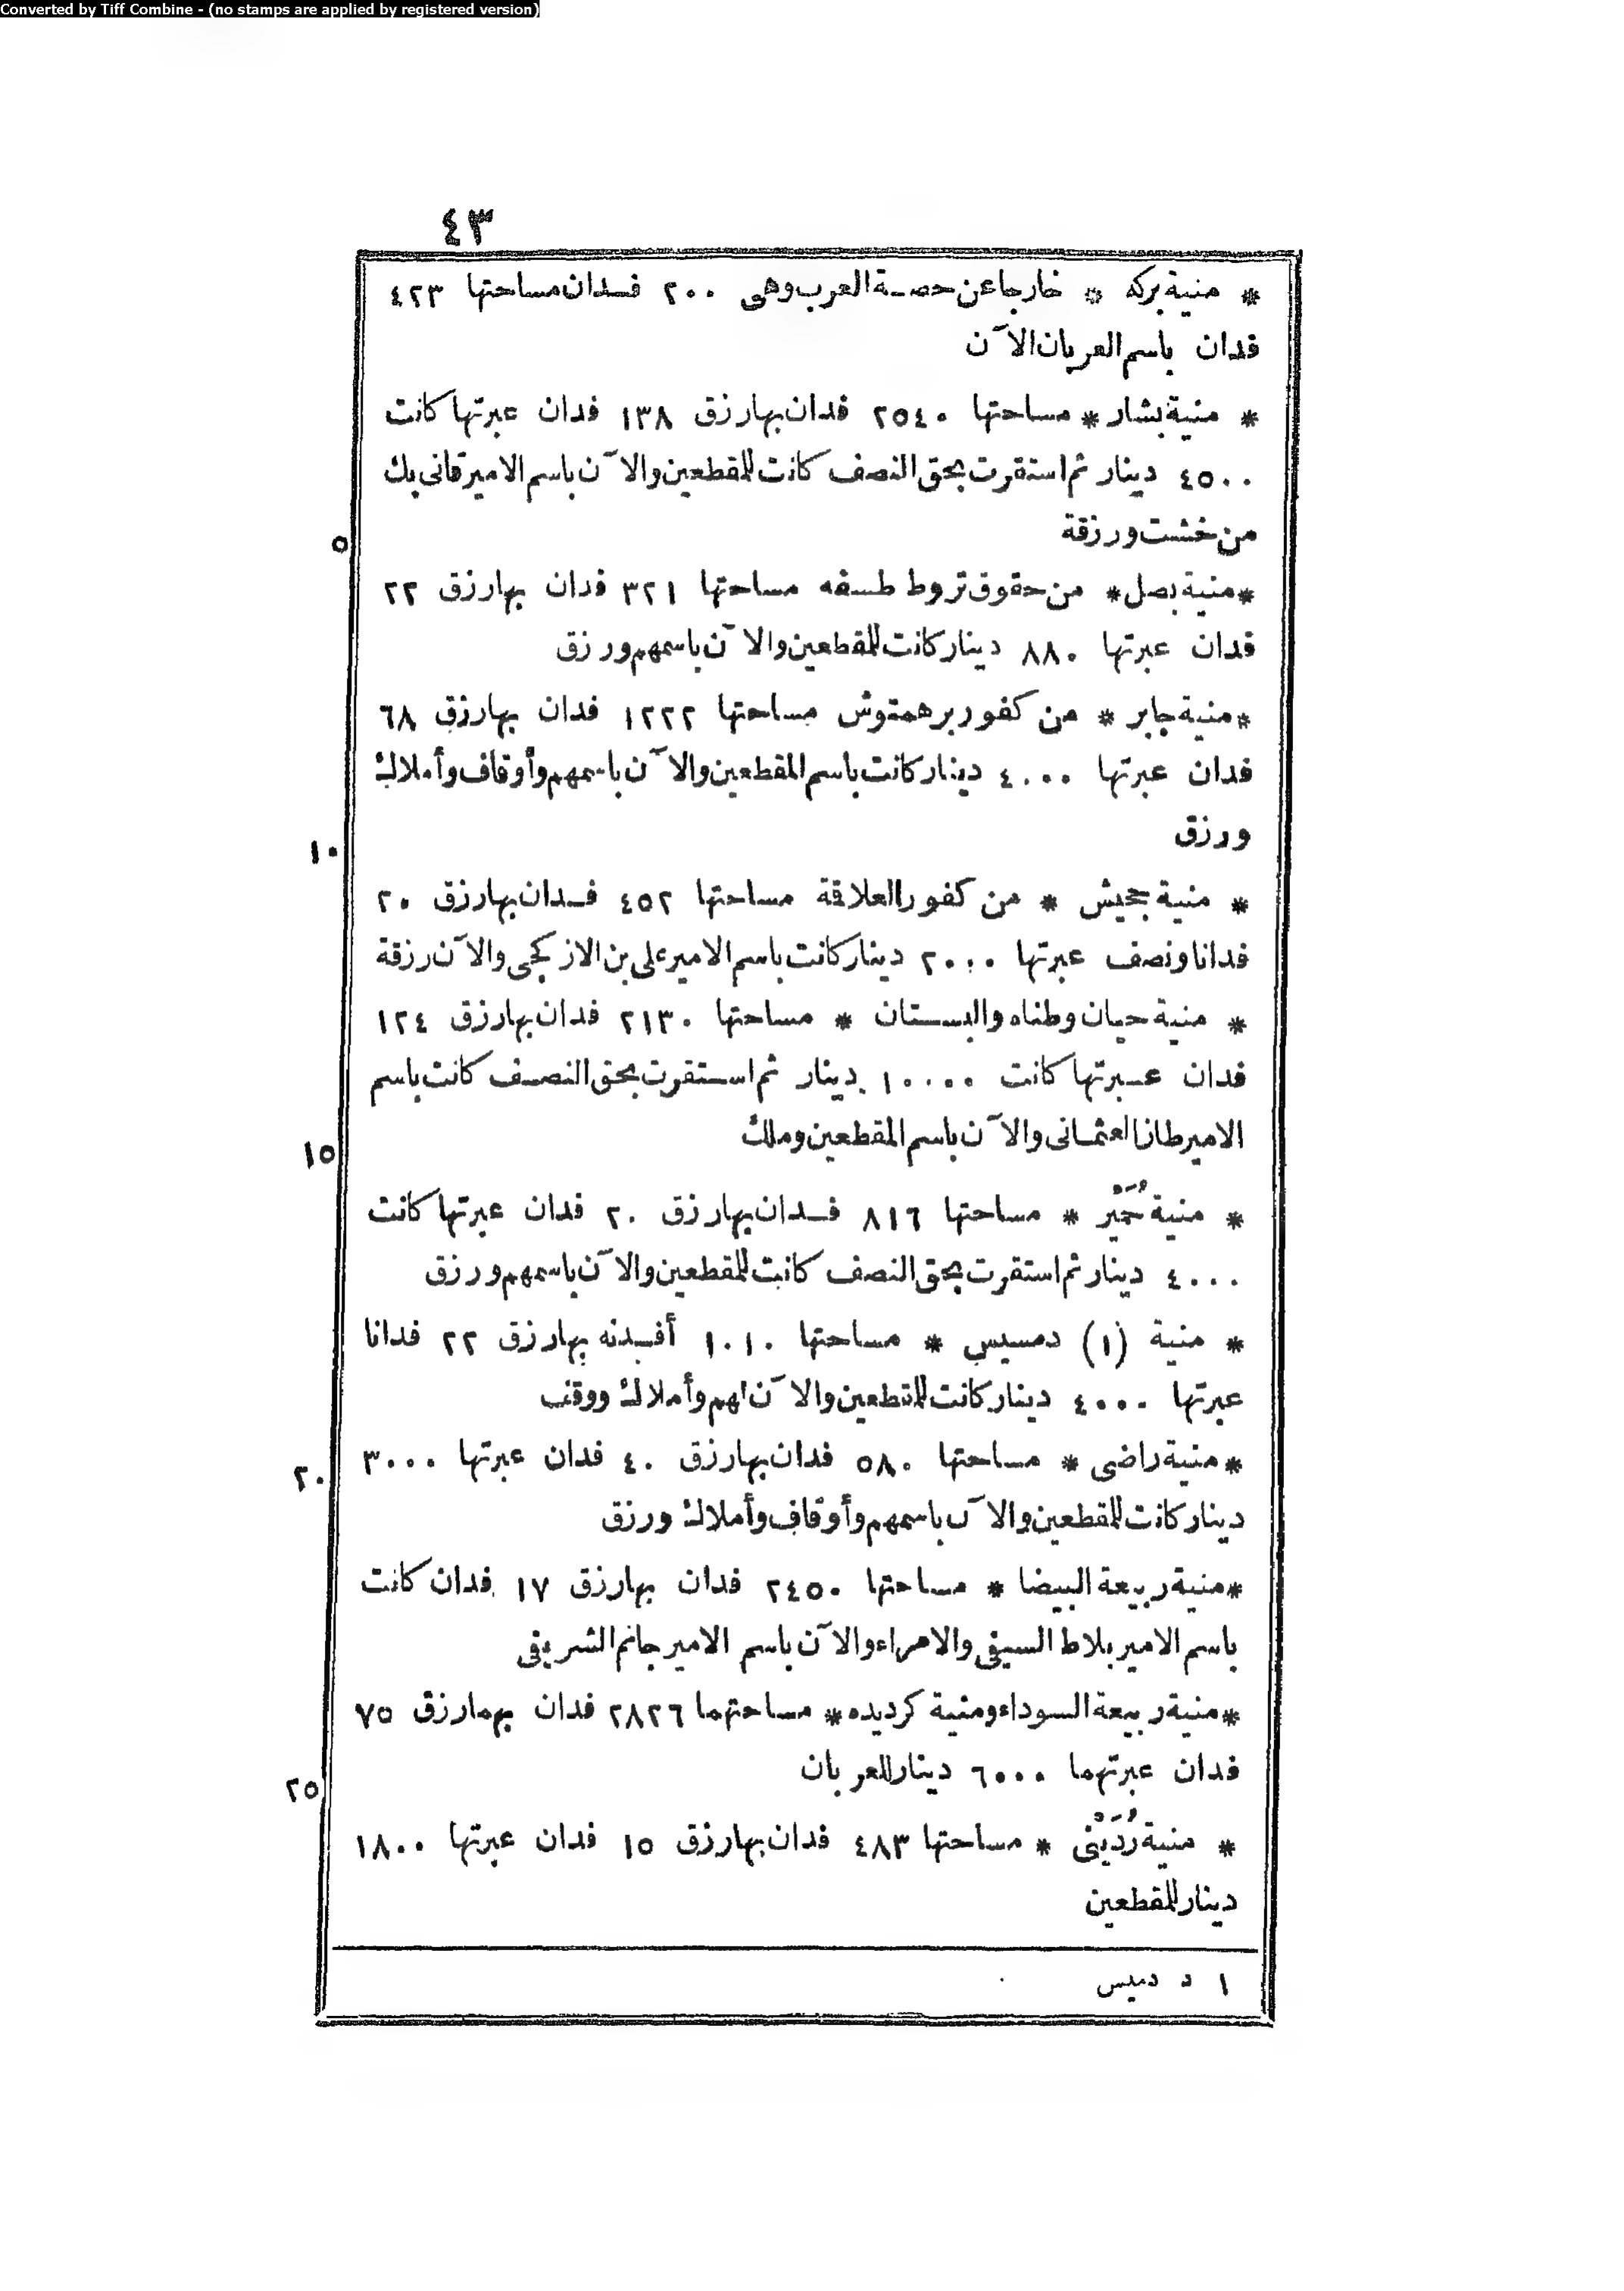 Converted by Tiff Combine - (no stamps are applied by registered version)
٤٣
* منية بركه * خارجا عن حصة العرب وهى ٢٠٠ فدان مساحتها ٤٢٣
فدان باسم العربان الآن
* منية بشار * مساحتها ٢٥٤٠ فدان بها رزق ١٣٨ فدان عبرتها كانت
٤٥٠٠ دينار ثم استقرت بحق النصف كانت للمقطعين والآن باسم الامير قانى بك
من خشت ورزقة
٥
* منية بصل * من حقوق تروط طسفه مساحتها ٣٢١ فدان بها رزق ٢٢
فدان عبرتها ٨٨٠ دينار كانت للمقطعين والآن باسمهم ورزق
* منية جابر * من كفور برهمتوش مساحتها ١٢٢٢ فدان بها رزق ٦٨
فدان عبرتها ٤٠٠٠ دينار كانت باسم المقطعين والآن باسمهم وأوقاف وأملاك
ورزق
١٠
* منية جحيش * من كفور العلاقة مساحتها ٤٥٢ فدان بها رزق ٢٠
فدانا ونصف عبرتها ٢٠٠٠ دينار كانت باسم الامير على بن الازكجى والآن رزقة
* منية حيان وطناه والبستان * مساحتها ٢١٣٠ فدان بها رزق ١٢٤
فدان عبرتها كانت ١٠٠٠٠ دينار ثم استقرت بحق النصف كانت باسم
الامير طاز العثمانى والآن باسم المقطعين وملك
١٥
* منية حُمَيْر * مساحتها ٨١٦ فدان بها رزق ٢٠ فدان عبرتها كانت
٤٠٠٠ دينار ثم استقرت بحق النصف كانت للمقطعين والآن باسمهم ورزق
* منية (١) دمسيس * مساحتها ١٠١٠ أفدنه بها رزق ٢٢ فدانا
عبرتها ٤٠٠٠ دينار كانت للمقطعين والآن لهم وأملاك ووقف
* منية راضى * مساحتها ٥٨٠ فدان بها رزق ٤٠ فدان عبرتها ٣٠٠٠
٢٠
دينار كانت للمقطعين والآن باسمهم وأوقاف وأملاك ورزق
* منية ربيعة البيضا * مساحتها ٢٤٥٠ فدان بها رزق ١٧ فدان كانت
باسم الامير بلاط السيفى والامراء والآن باسم الامير جانم الشريفى
* منية ربيعة السوداء ومنية كرديده * مساحتهما ٢٨٢٦ فدان بهما رزق ٧٥
فدان عبرتهما ٦٠٠٠ دينار للعربان
٢٥
* منية رُدَيْنى * مساحتها ٤٨٣ فدان بها رزق ١٥ فدان عبرتها ١٨٠٠
دينار للمقطعين
١ د دميس